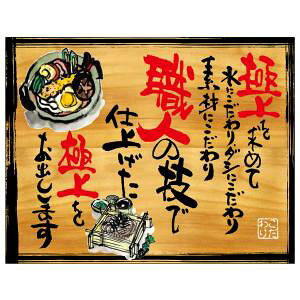 極上を求めて
水にこだわりダシにこだわり
素材にこだわり
職人の技で
仕上げた
極上を
お出しします
こだわり